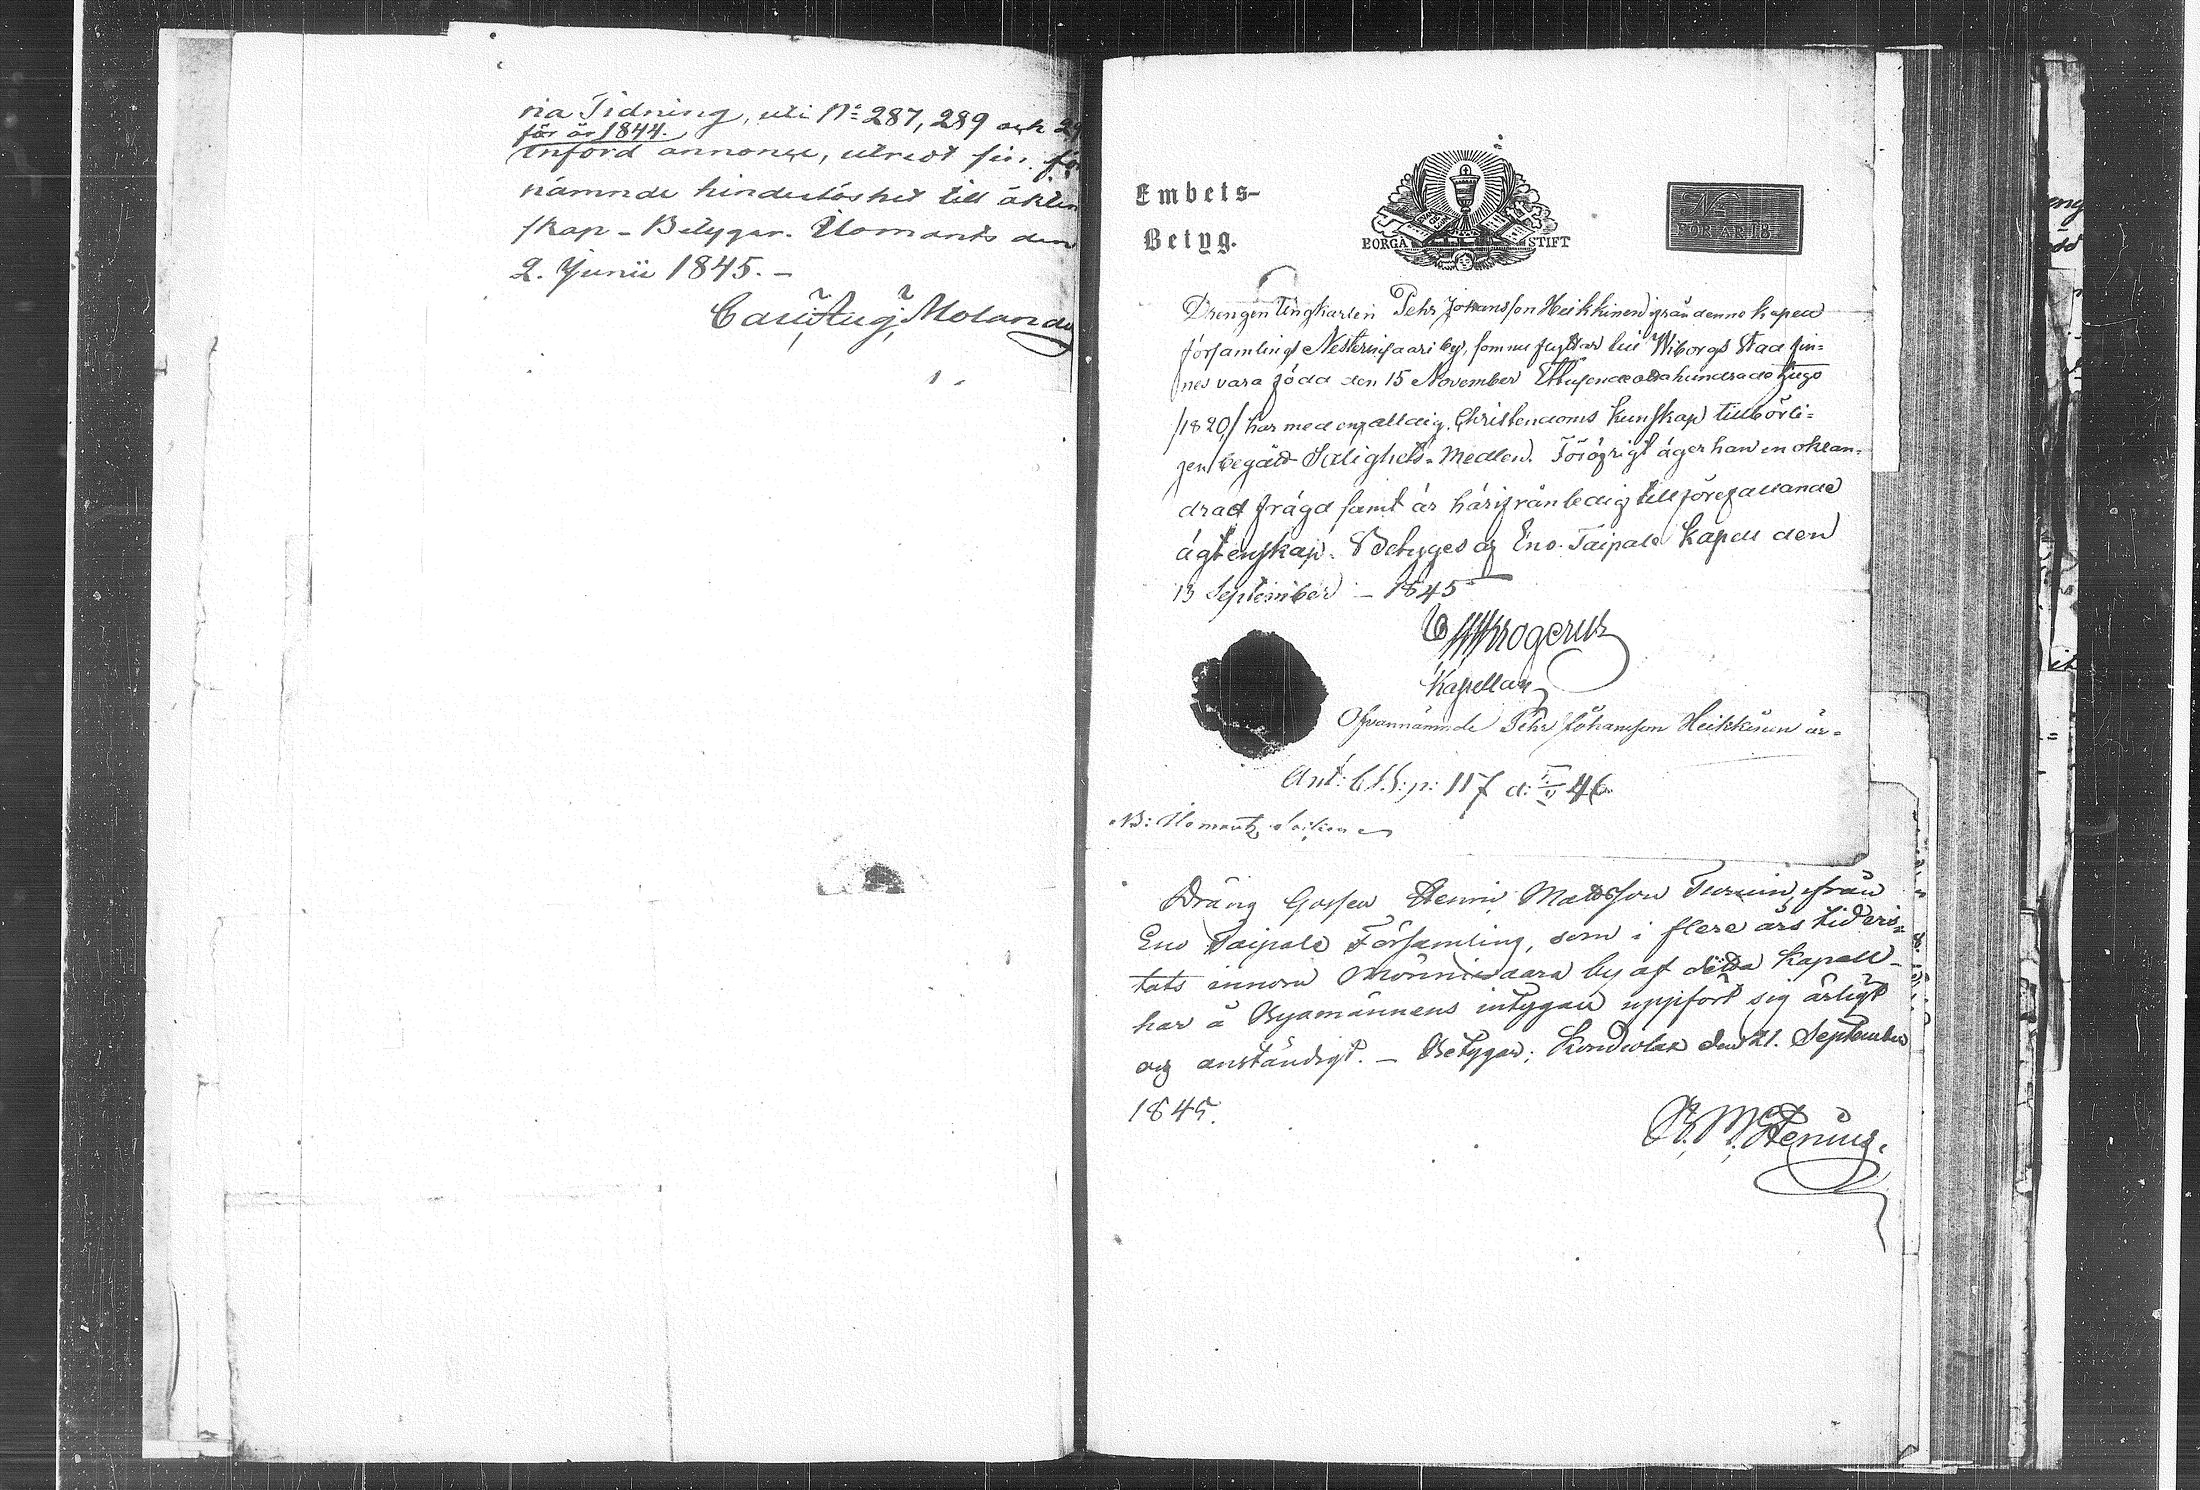 ria Tidning, uti No 287, 289 och 29
för år 1844.
införd annonce, utredt sin för
nämnde hinderlöshet till äkten
skap - Betygar. Ilomants den
2. Junii 1845. -
Carl Aug. Molande
Embets-
Betyg.
BORGÅ STIFT
No
FÖR ÅR 18
Drengen Ungkarlen Pehr Johansson Heikkinen ifrån denne Kapell
församlings by, som nu flyttar till Wiborgs Stad fin-
nes vara född den 15 November Ettusendeottahundradetjugo
/1820/ har med enfalldig Christendoms kunskap tillbörli-
gen begådt Salighets-Medlen. Föröfrigt äger han en oklan-
drad frägd samt är härifrån ledig till förefallande
ägtenskap. Betyges af Eno Taipale Kapell den
13 September - 1845
Krogerus
Kapellan
Ofvannämnde Pehr Johansson Heikkinen är-
Ant: p: 117 d: 46
NB: Ilomantz Socken
Dräng Gossen Henric Matdsson Turuin, ifrån
Eno Taipale Församling, som i flere års tid vis-
tats innom by af detta Kapell-
har å Byamännens intygan uppfört sig ärligt
och anständigt. - Betygar; Kondiolax den 21. September
1845.
M. Stenius.